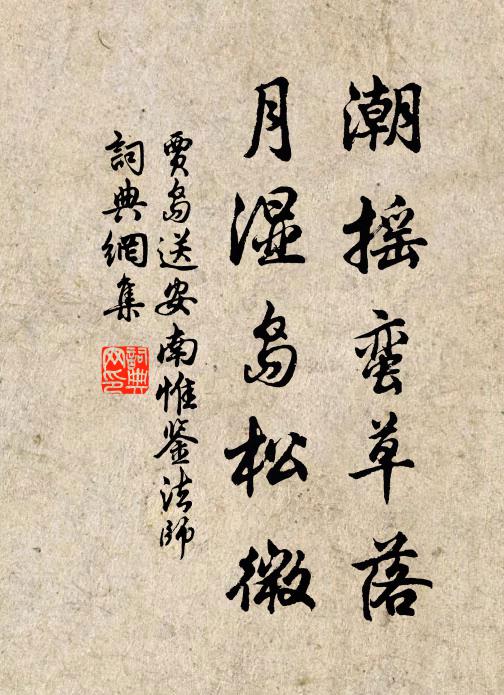 潮摇蛮草落
月湿岛松微
贾岛送安南惟鉴法师
詞典網集
詞典
网印